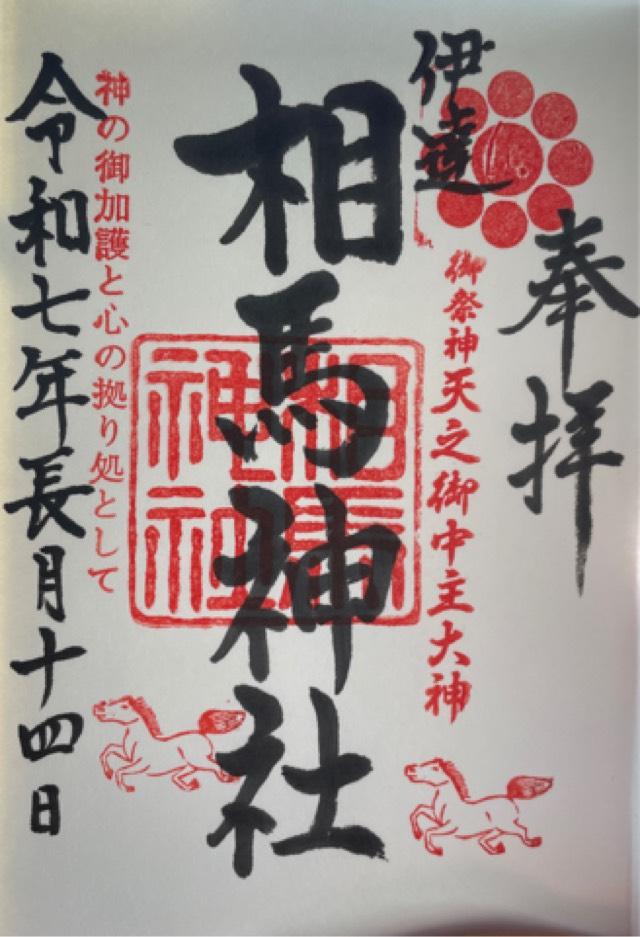 奉拝
伊達
御祭神天之御中主大神
相馬神社
相馬神社
神の御加護と心の拠り処として
令和七年長月十四日